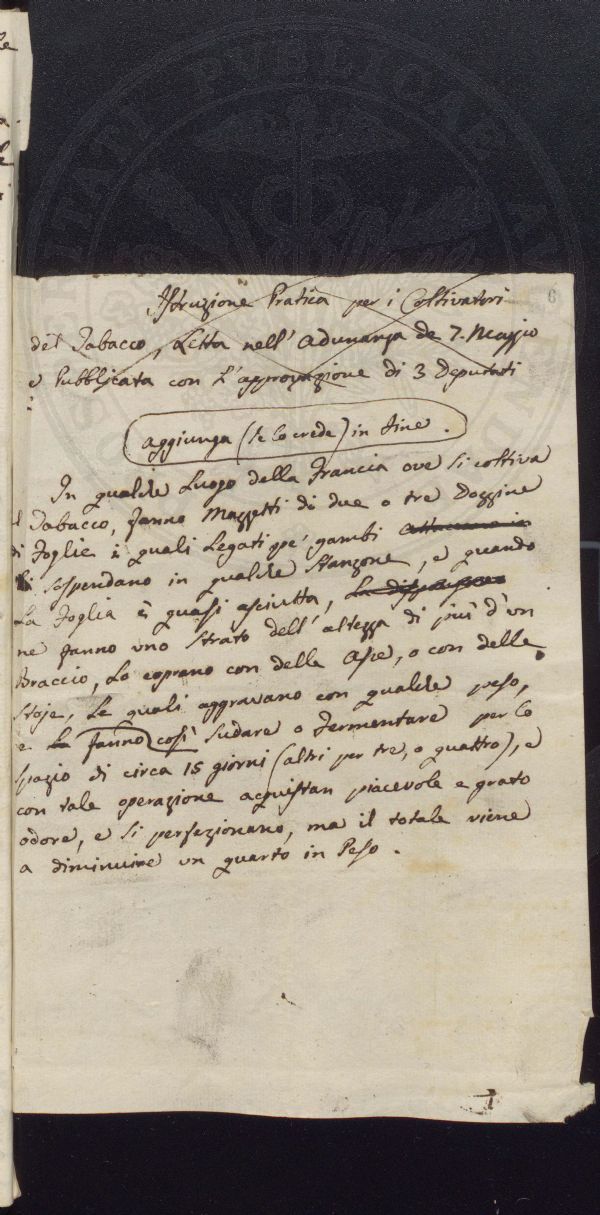 6
Istruzione Pratica per i Coltivatori
del Tabacco, Letta nell' adunanza de 7. Maggio
e Pubblicata con L'approvazione di 3 Deputati
aggiunga (se lo crede) in fine.
In qualche Luogo della Francia ove si coltiva
il Tabacco, fanno Mazzetti di due o tre Dozzine
di Foglie i quali Legati pe' gambi
li sospendano in qualche stanzone, e quando
La foglia è quasi asciutta,
ne fanno uno strato dell'altezza di più d'un
Braccio, Lo coprano con delle Asse, o con delle
stoje, Le quali aggravano con qualche peso,
e La fanno così sudare o fermentare per lo
spazio di circa 15 giorni (altri per tre, o quattro), e
con tale operazione acquistan piacevole e grato
odore, e si perfezionano, ma il totale viene
a diminuire un quarto in Peso.